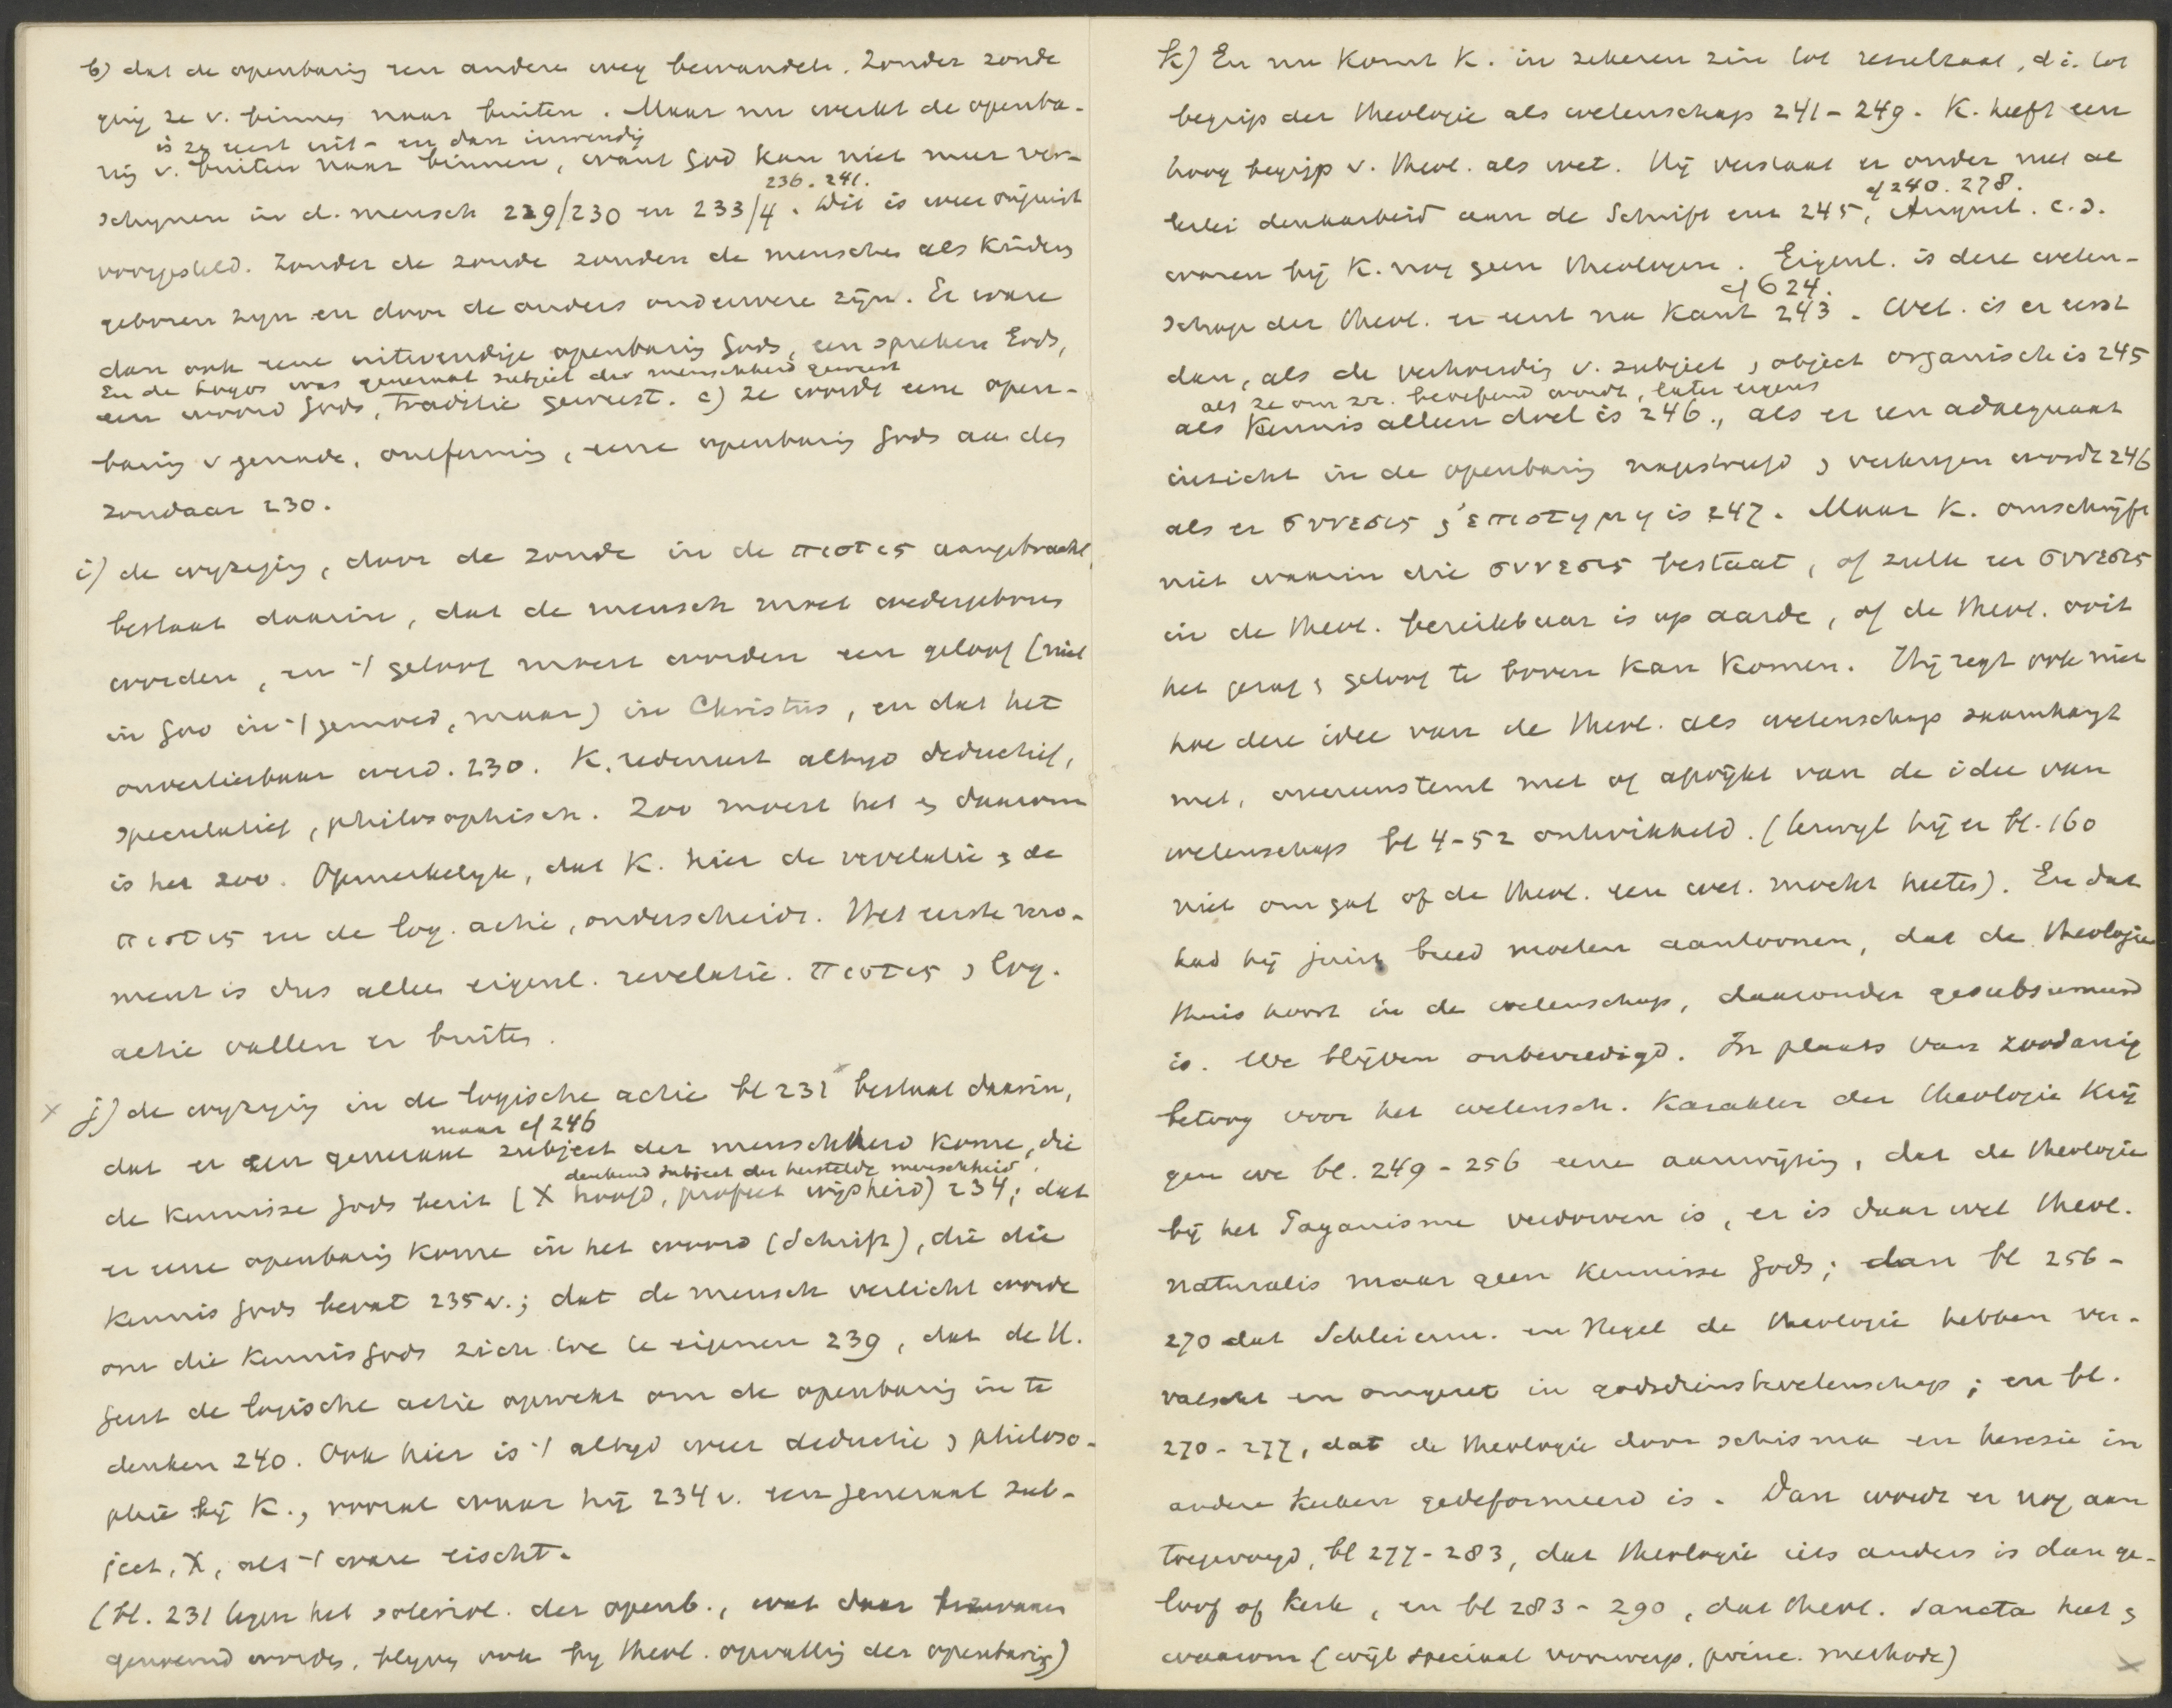 b) dat de openbaring een andere weg bewandele. Zonder zonde
ging ze v. binnen naar buiten. Maar nu werkt de openba-
is ze eerst uit- en dan inwendig
ring v. buiten naar binnen, want God kan niet meer ver-
236. 241.
schijnen in d. mensch 229/230 en 233/4. Dit is weer onjuist
voorgesteld. Zonder de zonde zouden de menschen als kinders
geboren zijn en door de ouders onderwezen zijn. Er ware
dan ook eene uitwendige openbaring Gods, een spreken Gods,
En de Logos was generaal subject der menschheid geweest
een woord Gods, traditie geweest. c) ze wordt eene open-
baring v genade, ontferming, eene openbaring Gods aan den
zondaar 230.
i) de wijziging, door de zonde in de πιστις aangebracht,
bestaat daarin, dat de mensch moet wedergeboren
worden, en 't geloof moest worden een geloof (niet
in God in 't gemoed, maar) in Christus, en dat het
onverliesbaar werd. 230. K. redeneert altijd deductief,
speculatief, philosophisch. Zoo moest het en daarom
is het zoo. Opmerkelijk, dat K. hier de revelatie en de
πιστις en de log. actie, onderscheidt. Het eerste mo-
ment is dus alleen eigenl. revelatie. πιστις en log.
actie vallen er buiten.
x j) de wijziging in de logische actie bl 231 x bestaat daarin,
maar cf 246
dat er een generaal subject der menschheid kome, die
denkend subject der herstelde menschheid
de kennisse Gods bezit (X hoofd, profeet wijsheid) 234; dat
er eene openbaring kome in het woord (Schrift), die die
kennis Gods bevat 235 v.; dat de mensch verlicht worde
om die kennis Gods zich toe te eigenen 239, dat de H.
Geest de logische actie opwekt om de openbaring in te
denken 240. Ook hier is 't altijd weer deductie en philoso-
phie bij K., vooral waar hij 234 v. een generaal sub-
ject, X, als 't ware eischt.
(bl. 231 tegen het soteriol. der openb., wat daar
genoemd worden, blijven ook bij theol. opvatting der openbaring)
k) En nu komt K. in zekeren zin tot resultaat, d.i. tot
begrip der theologie als wetenschap 241-249. K. heeft een
hoog begrip v. theol. als wet. Hij verstaat er onder niet al
cf 240. 278.
lerlei denkarbeid aan de Schrift enz 245, August. c.s.
waren bij K. nog geen theologen. Eigenl. is deze weten-
cf 624.
schap der theol. er eerst na Kant 243. Wet. is er eerst
dan, als de verhouding v. subject en object organisch is 245
als ze om zr. beoefend wordt, later eigens
als kennis alleen doel is 246., als er een adaequaat
inzicht in de openbaring nagestreefd en verkregen wordt 246
als er συνεσις en ἐπιστημη is 247. Maar K. omschrijft
niet waarin die συνεσις bestaat, of zulk een συνεσις
in de theol. bereikbaar is op aarde, of de theol. ooit
het gezag en geloof te boven kan komen. Hij zegt ook niet
hoe deze idee van de theol. als wetenschap saamhangt
met, overeenstemt met of afwijkt van de idee van
wetenschap bl 4-52 ontwikkeld. (terwijl hij er bl. 160
niet om gaf of de theol. een wet. mocht heeten). En dat
had hij juist breed moeten aantoonen, dat de theologie
thuis hoort in de wetenschap, daaronder gesubsumeerd
is. We blijven onbevredigd. In plaats van zoodanig
betoog voor het wetensch. karakter der theologie krij
gen we bl. 249-256 eene aanwijzing, dat de theologie
bij het Paganisme verdorven is, er is daar wel theol.
naturalis maar geen kennisse Gods; dan bl 256-
270 dat Schleierm. en Hegel de theologie hebben ver-
valscht en omgezet in godsdienstwetenschap; en bl.
270-277, dat de theologie door schisma en heresie in
andere kerken gedeformeerd is. Dan wordt er nog aan
toegevoegd, bl 277-283, dat theologie iets anders is dan ge-
loof of kerk, en bl 283-290, dat theol. Sancta heet en
waarom (wijl speciaal voorwerp, princ. methode)
x